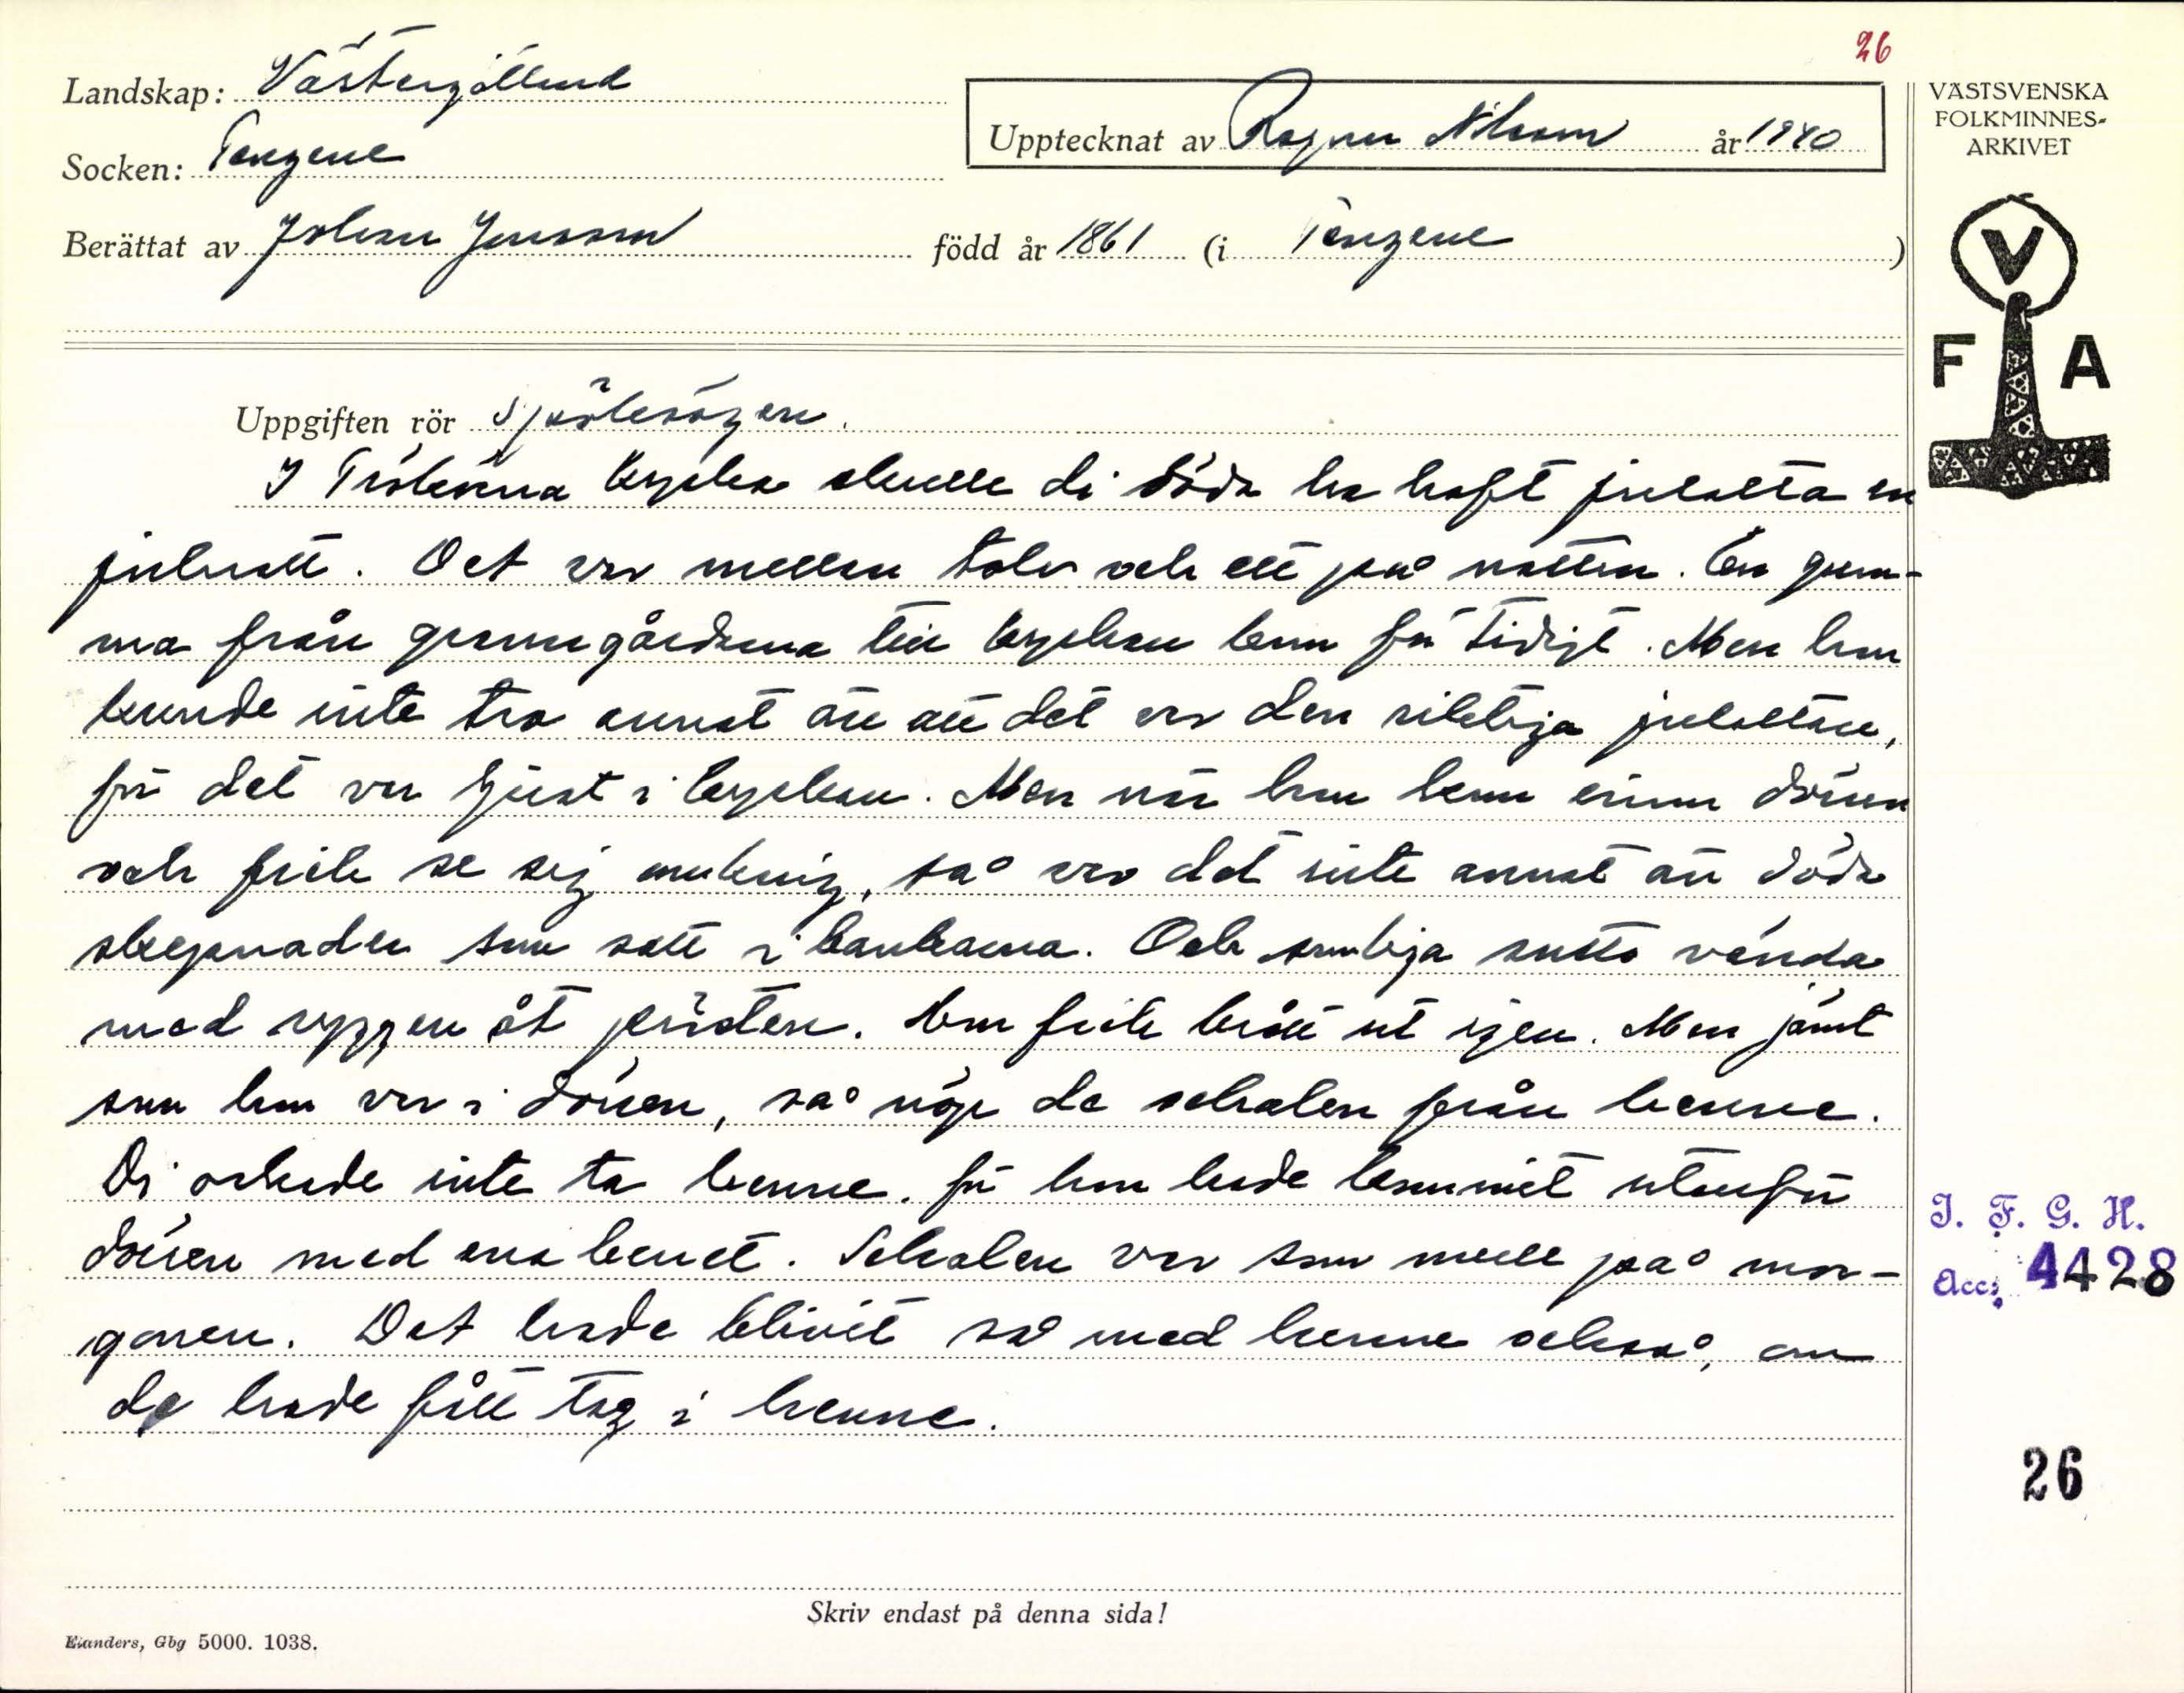 26
Landskap: Västergötland
Upptecknat av Ragnar Nilsson år 1940
Socken: Tengene
Berättat av Johan Jonsson född år 1861 (i Tengene)
VÄSTSVENSKA
FOLKMINNES-
ARKIVET
V
F A
Uppgiften rör Spöksägen.
I Trökörna kyrka skulle di döda ha haft julotta en
julnatt. Det var mellan tolv och ett på natten. En gum-
ma från granngårdarna till kyrkan kom för tidigt. Men hon
kunde inte tro annat än att det var den riktiga julottan,
för det var ljust i kyrkan. Men när hon kom innom dörren
och fick se sig omkring, så var det inte annat än döda
skepnader som satt i bänkarna. Och somliga sutto vända
med ryggen åt prästen. Hon fick brått ut igen. Men jämt
som hon var i dörren, så nöp de schalen från henne.
Di orkade inte ta henne, för hon hade kommit utanför
dörren med ena benet. Schalen var som mull på mor-
gonen. Det hade blivit så med henne också, om
de hade fått tag i henne.
I. F. G. H.
Acc: 4428
26
Skriv endast på denna sida!
Elanders, Gbg 5000. 1038.